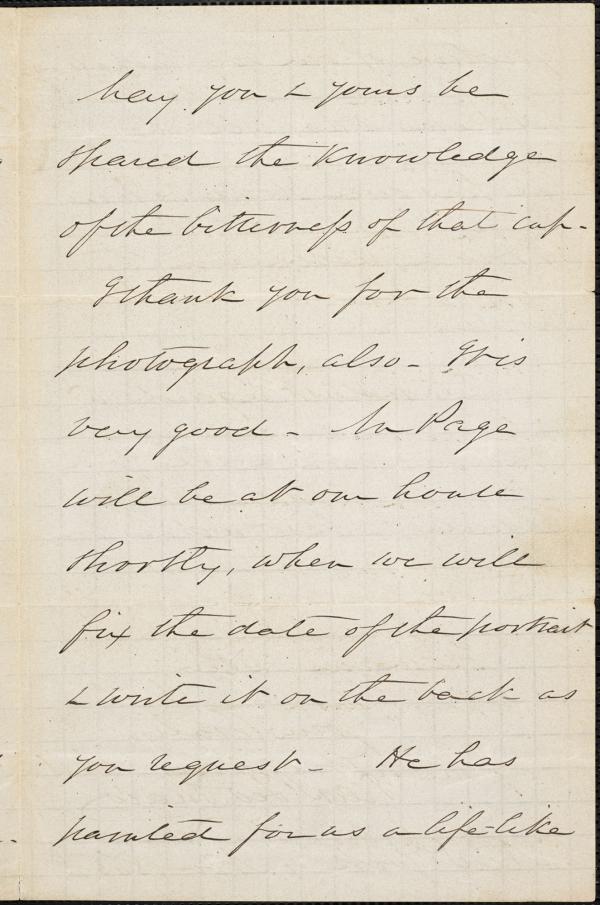 May you & yours be
spared the knowledge
of the bitterness of that cup.
I thank you for the
photograph, also - It is
very good - Mr Page
will be at our house
shortly, when we will
fix the date of the portrait
& write it on the back as
you request - He has
painted for us a life-like